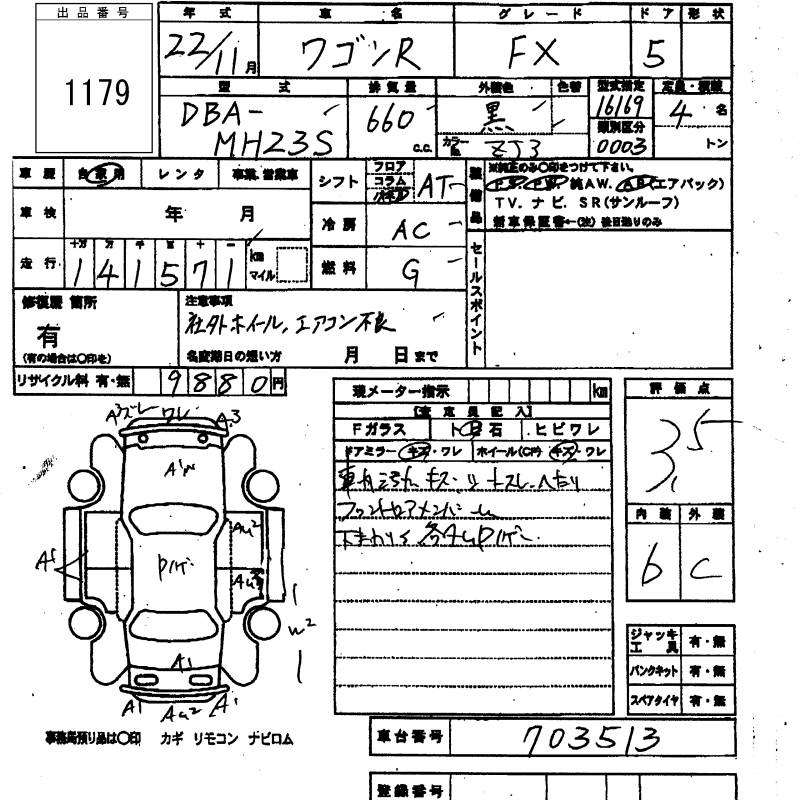 出品番号
1179
年式 車名 グレード ドア 形状
22/11月 ワゴンR FX 5
型式 排気量 外装色 色替 型式指定 定員・積載
DBA-MH23S 660 c.c. 黒 16169 4名
カラーNo. ZJ3 類別区分 0003 トン
車歴 自家用 レンタ 事業、営業車
シフト フロア コラム AT
装備品
※純正のみ〇印をつけて下さい。
P.S. P.W. 純AW. AB(エアバック)
TV. ナビ. SR(サンルーフ)
新車保証書←(注)後日送りのみ
車検 年 月
冷房 AC
走行 十万 万 千 百 十 一
141571 km マイル
燃料 G
セールスポイント
修復歴 箇所
有
(有の場合は〇印を)
注意事項
社外ホイール、エアコン不良
名変期日の短い方 月 日まで
リサイクル料 有・無 9880円
現メーター指示 km
【査定員記入】
Fガラス 石 ヒビワレ
ドアミラー キズ・ワレ ホイール(CP) キズ・ワレ
評価点
3.5
内装 外装
b C
A3 ワレ A3
A1
AU2
A1
AU2
W2
A1
A1 AU2 A1
ジャッキ工具 有・無
パンクキット 有・無
スペアタイヤ 有・無
事務局預り品は〇印 カギ リモコン ナビロム
車台番号 703513
登録番号